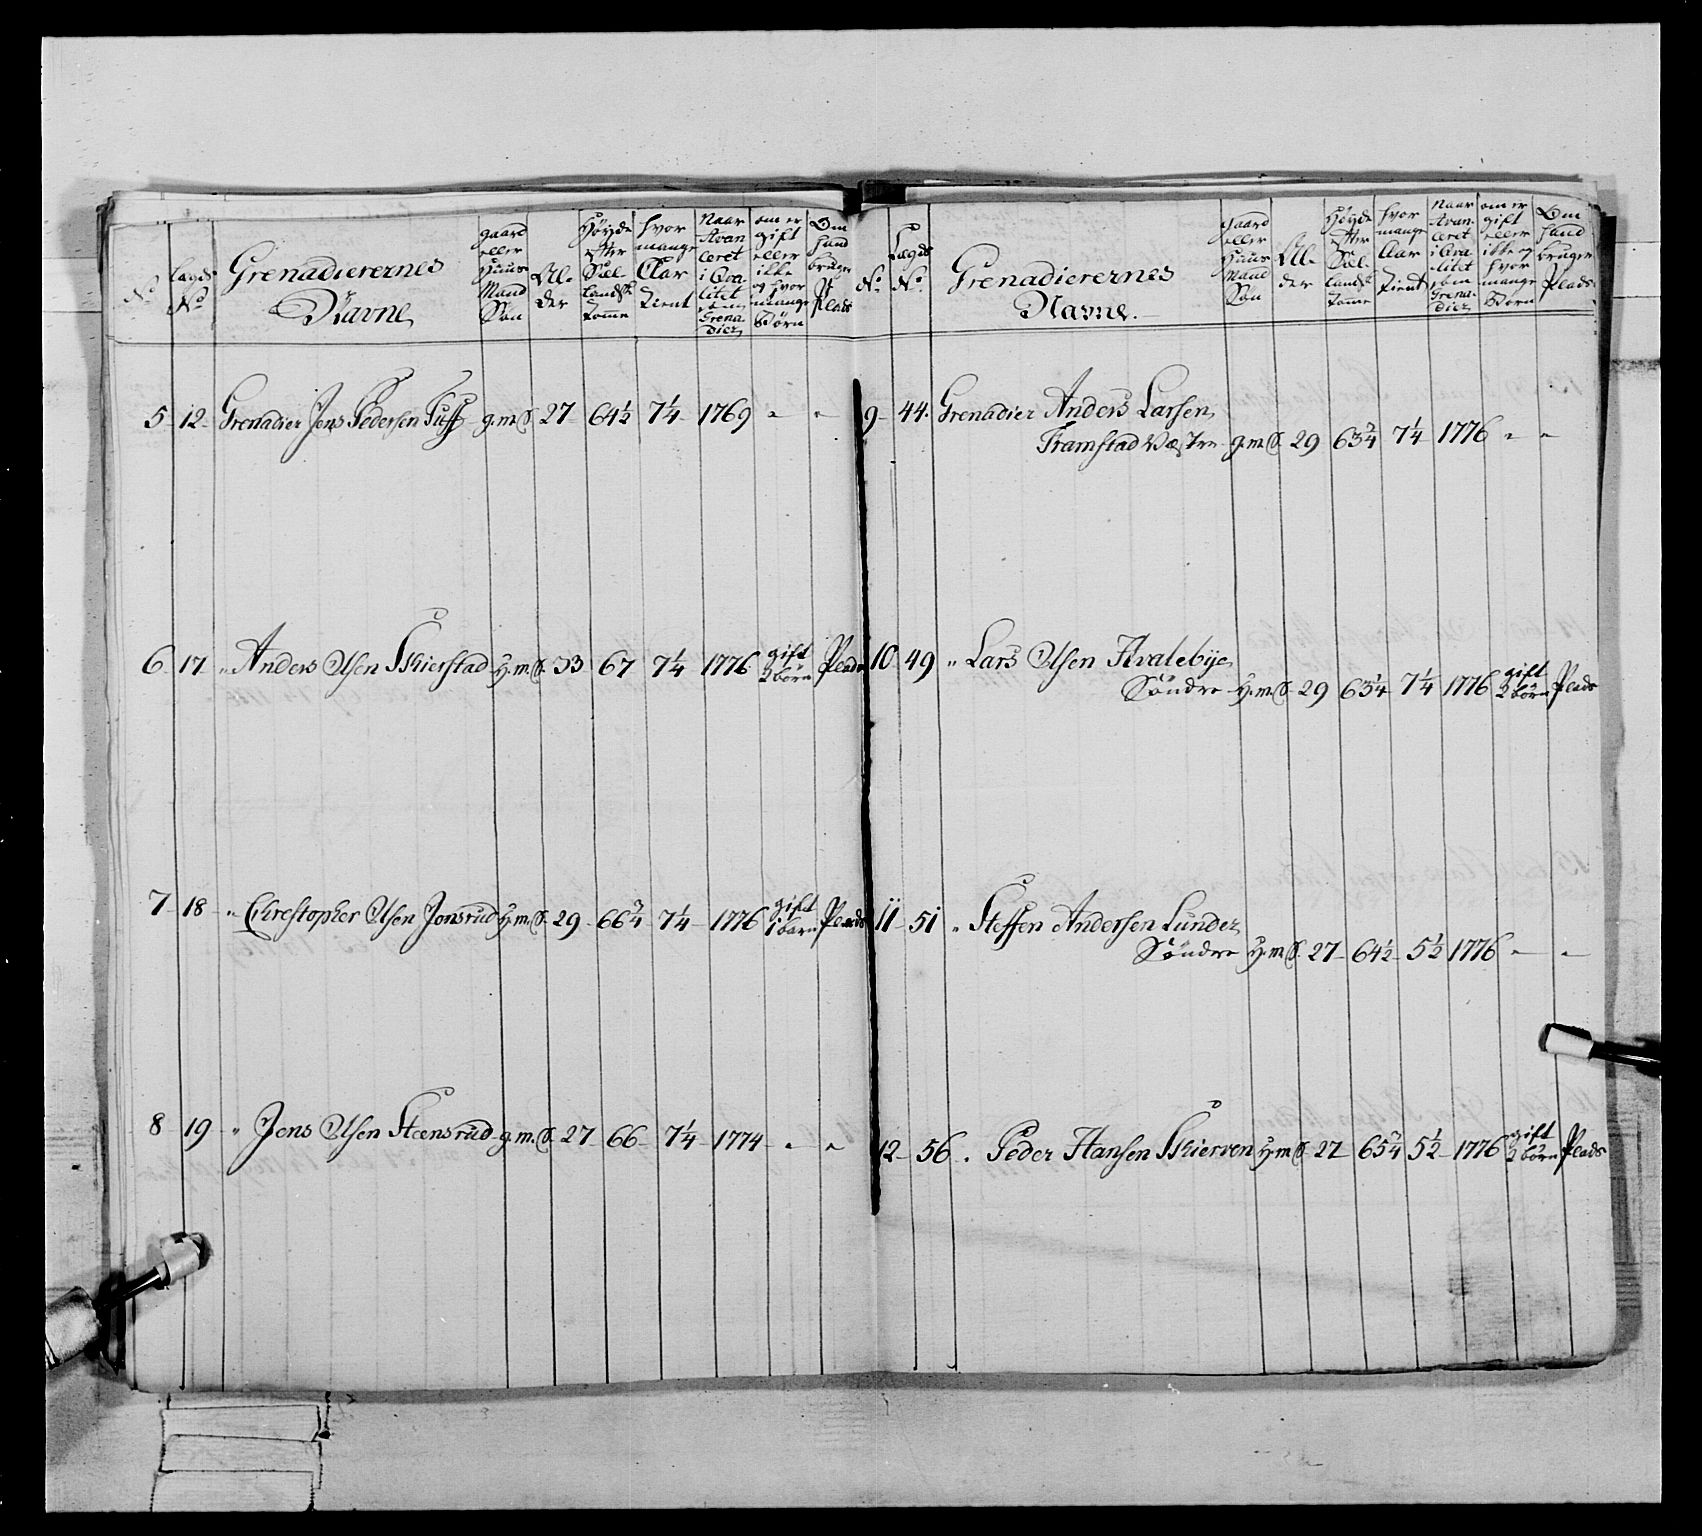 No
Lægds No
Grenadierernes Navne
gaard eller Huus Mand Søn
Al- der
Høyde efter Siæl- landsk tomme
hvor mange Aar Tient
Naar Avan- ceret i Qva- litet som Grena- dier
om er gift eller ikke og hvor mange Börn
Om hand bruger Plads
5 12 Grenadier Jens Pedersen Tuff g.m.S. 27 64½ 7¼ 1769 " "
6 17 " Anders Olsen Skierstad H.m.S. 33 67 7¼ 1776 gift 2 börn Plads
7 18 " Christopher Olsen Jonsrud H.m.S. 29 66¾ 7¼ 1776 gift 1 barn Plads
8 19 " Jens Olsen Steensrud g.m.S. 27 66 7¼ 1774 " "
No
Lægds No
Grenadierernes Navne.
gaard eller Huus Mand Søn
Al- der
Høyde efter Siæl- landsk tomme
hvor mange Aar Tient
Naar Avan- ceret i Qva- litet som Grena- dier
om er gift eller ikke og hvor mange Börn
Om hand bruger Plads
9 44. Grenadier Anders Larsen
Tramstad Væstre g.m.S. 29 63¾ 7¼ 1776 " "
10 49 " Lars Olsen Hvalebÿe
Söndre H.m.S. 29 63¼ 7¼ 1776 gift 2 börn Plads
11 51 " Steffen Andersen Lunder
Söndre H.m.S. 27 64½ 5½ 1776 " "
12 56 " Peder Hansen Skierven H.m.S. 27 65¾ 5½ 1776 gift 2 börn Plads